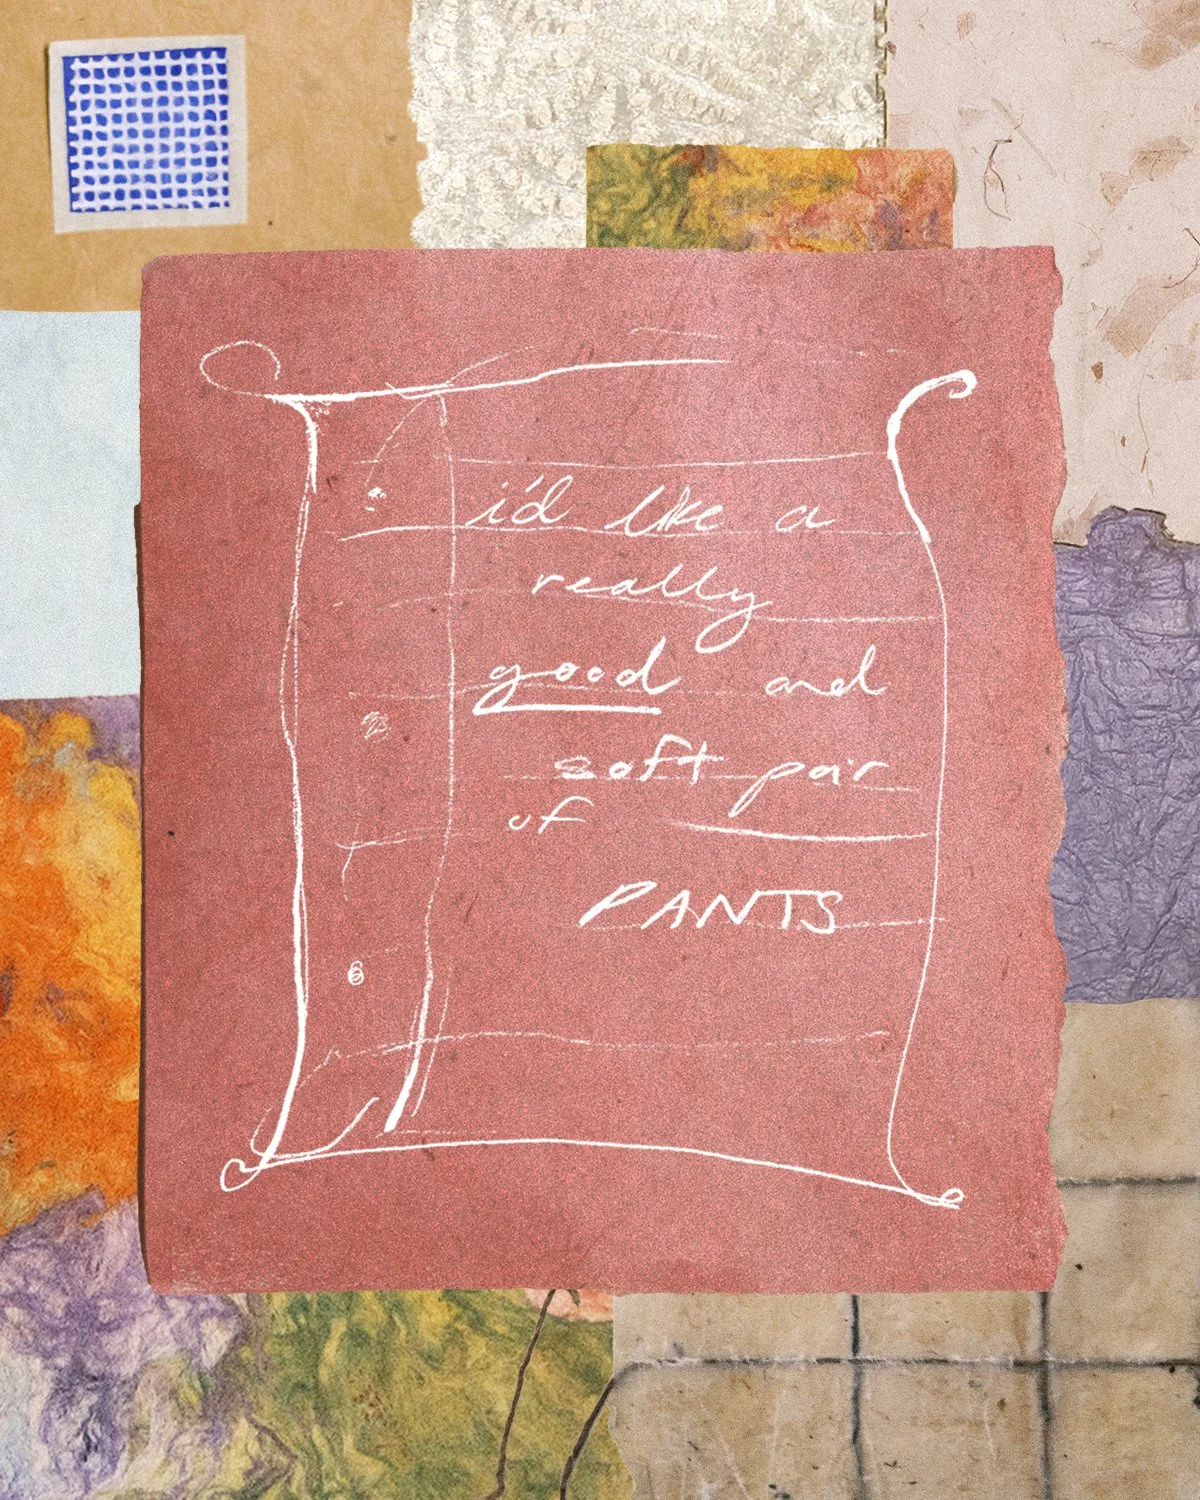 i'd like a
really
good and
soft pair
of
PANTS